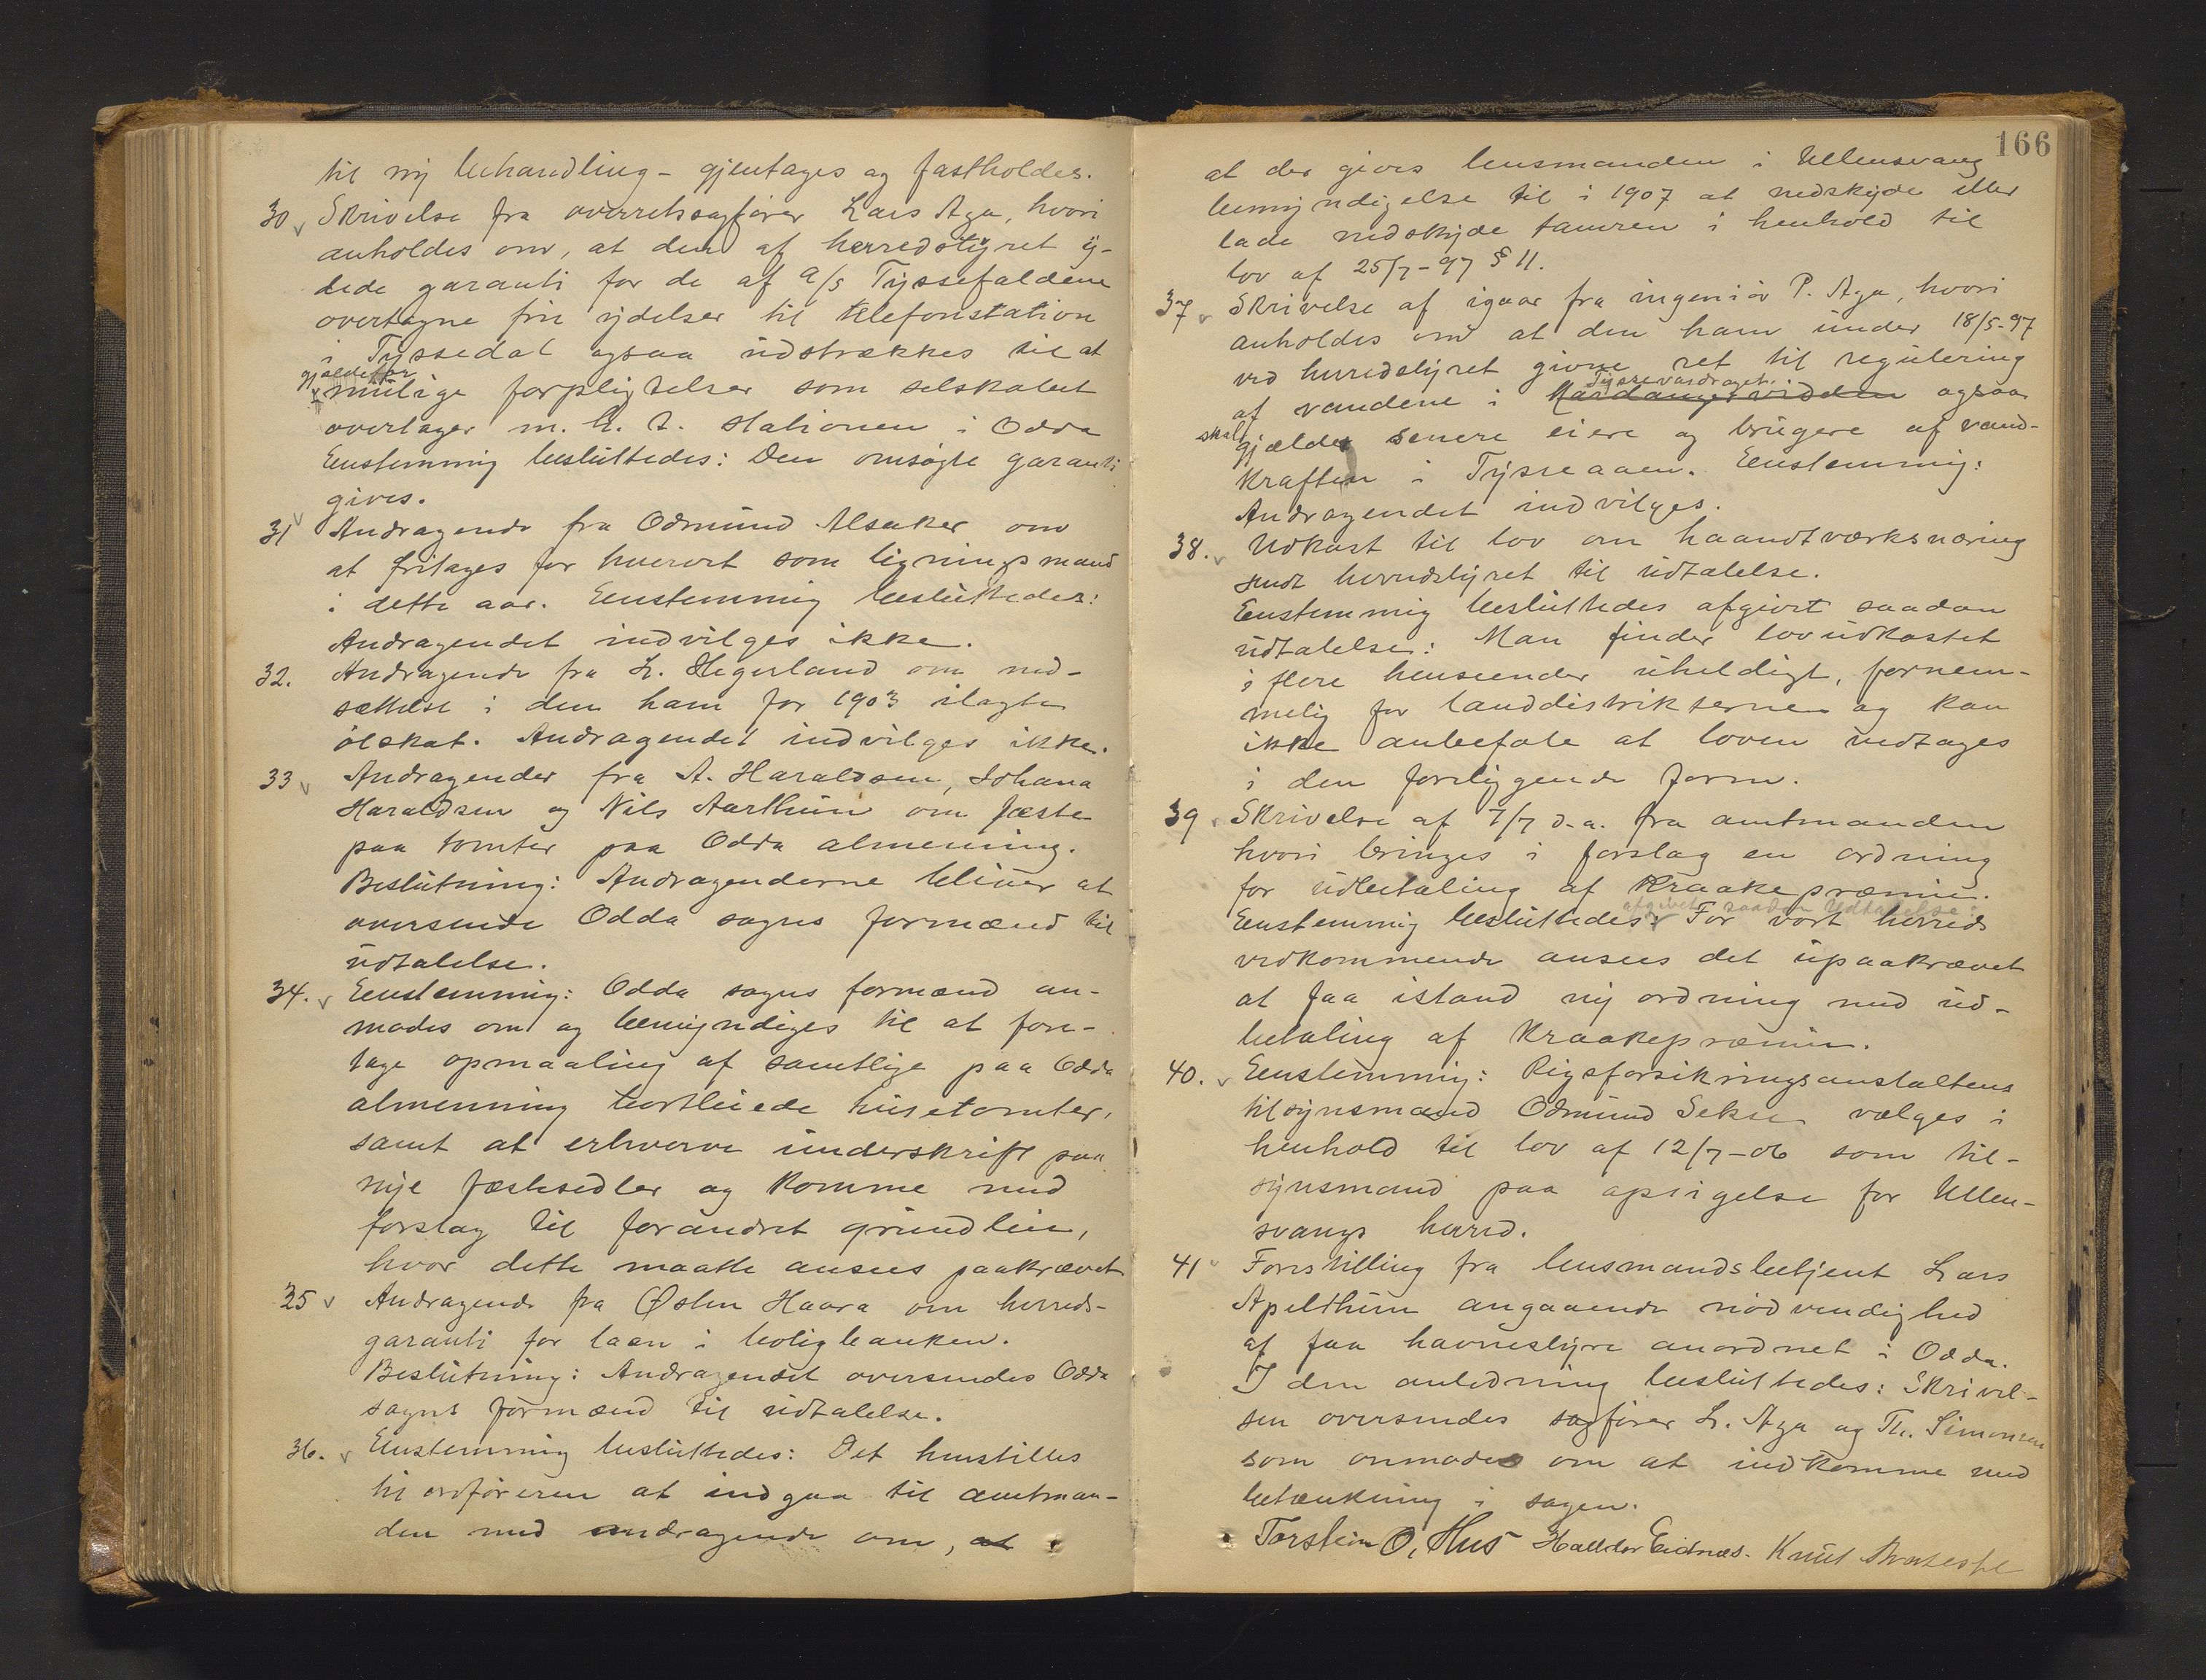 til ny behandling - gjentages og fastholdes.
30 v Skrivelse fra overretssagfører Lars Aga, hvori
anholdes om, at den af herredstyret y-
dede garanti for de af A/S Tyssefaldene
overtagne frie ydelser til telefonstation
i Tyssedal ogsaa udstrækkes til at
gjælde for
mulige forpligtelser som selskabet
overtager m. h. t. stationen i Odda
Eenstemmig besluttedes: Den omsøgte garanti
gives.
31 v Andragende fra Odmund Alsaker om
at fritages for hvervet som ligningsmand
i dette aar. Eenstemmig besluttedes:
Andragendet indvilges ikke.
32. Andragende fra L. Hegerland om ned-
sættelse i den ham for 1903 ilagte
ølskat. Andragendet indvilges ikke.
33 v Andragender fra A. Haraldsen, Johana
Haraldsen og Nils Aarthun om fæste
paa tomter paa Odda almenning.
Beslutning: Andragenderne bliver at
oversende Odda sogns formænd til
udtalelse.
34. v Eenstemmig: Odda sogns formænd an-
modes om og bemyndiges til at fore-
tage opmaaling af samtlige paa Odda
almenning bortleiede husetomter,
samt at erhverve underskrift paa
nye fæstesedler og komme med
forslag til forandret grundleie,
hvor dette maatte ansees paakrævet
35 v Andragende fra Østen Haara om herreds-
garanti for laan i boligbanken.
Beslutning: Andragendet oversendes Odda
sogns formænd til udtalelse.
36. v Eenstemmig besluttedes: Det henstilles
til ordføreren at indgaa til amtman-
den med andragende om, at
166
at der gives lensmanden i Ullensvang
bemyndigelse til i 1907 at nedskyde eller
lade nedskyde tamren i henhold til
lov af 25/7-97 § 11.
37 v Skrivelse af igaar fra ingeniør P. Aga, hvori
anholdes om at den ham under 18/5-97
ved herredstyret givne ret til regulering
Tyssevasdraget
af vandene i Hardangervidden ogsaa
skal gjælde senere eiere og brugere af vand-
kraften i Tysseaaen. Eenstemmig:
Andragendet indvilges.
38. v Udkast til lov om haandtværksnæring
sendt herredstyret til udtalelse.
Eenstemmig besluttedes afgivet saadan
udtalelse: Man finder lovudkastet
i flere henseender uheldigt, fornem-
melig for landdistrikterne og kan
ikke anbefale at loven vedtages
i den foreliggende form.
39 v Skrivelse af 7/7 d.a. fra amtmanden
hvori bringes i forslag en ordning
for udbetaling af kraakepræmie.
afgivet saadan Udtalelse:
Eenstemmig besluttedes: For vort herreds
vedkommende ansees det upaakrævet
at faa istand ny ordning med ud-
betaling af kraakepræmie.
40. v Eenstemmig: Rigsforsikringsanstaltens
tilsynsmand Odmund Sekse vælges i
henhold til lov af 12/7-06 som til-
synsmand paa opsigelse for Ullen-
svangs herred.
41 v Forestilling fra lensmandsbetjent Lars
Apelthun angaaende nødvendighed
af faa havnestyre anordnet i Odda.
I den anledning besluttedes: Skrivel-
sen oversendes sagfører L. Aga og Th. Simonsen
som anmodes om at indkomme med
betænkning i sagen.
Torstein O. Hus Halldor Eidnæs. Knut